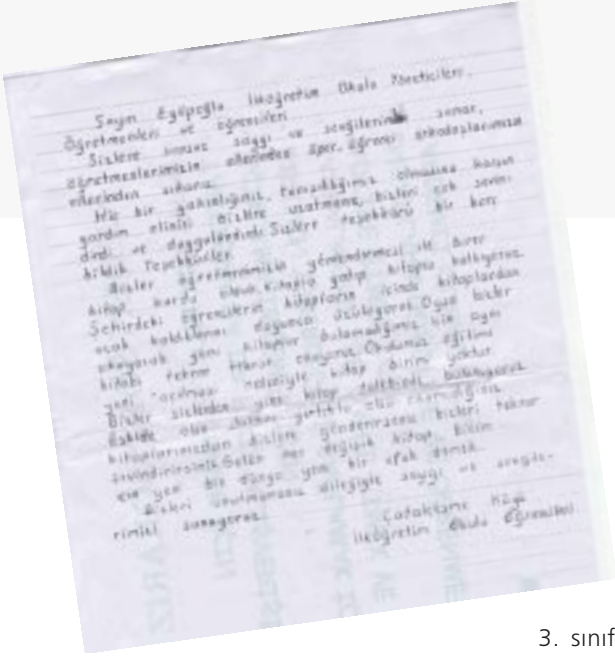 Sayın Eyüpoğlu İlköğretim Okulu Yöneticileri,
Öğretmenleri ve öğrencileri
Sizlere sonsuz saygı ve sevgilerimizi sunar,
öğretmenlerimizin ellerinden öper, öğrenci arkadaşlarımızın
Hiç bir yakınlığımız, tanışıklığımız olmasına karşın
yardım elinizi bizlere uzatmanız bizleri çok sevin-
dirdi ve duygulandırdı. Sizlere teşekkürü bir borç
bildik Teşekkürler
Bizler öğretmenimizin
kitap kurdu olduk. Kitapla yatıp kitapla kalkıyoruz.
Şehirdeki öğrencilerin kitapların içinde kitaplardan
uzak kaldıklarını üzülüyoruz. Oysa bizler
okuyacak yeni kitaplar bulamadığımız için aynı
kitabı tekrar tekrar okuyoruz. Okulumuz eğitime
yeni açılması nedeniyle kitap birim yoktur
Bizler sizlerden yine kitap talebinde bulunuyoruz
Eskide olsa olsa okumadığınız
kitaplarınızdan bizlere gönderirseniz bizleri tekrar
sevindirirsiniz. Gelen her değişik kitap, bizim
için yeni bir dünya yeni bir ufuk demek.
Bizleri unutmamanız dileğiyle saygı ve sevgile-
rimizi sunuyoruz.
Köyü
İlköğretim Okulu Öğrencileri
3. sınıf